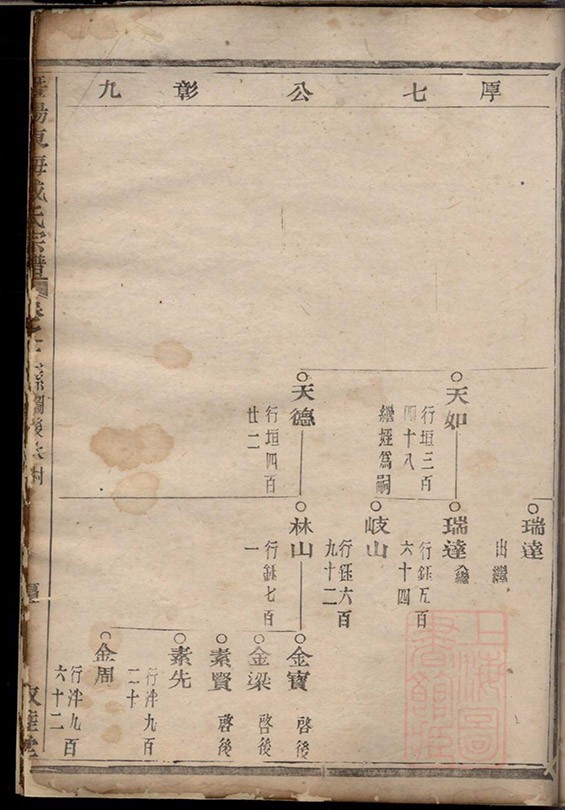 厚七公彰九
天如
行垣三百
四十八
繼姪爲嗣
天德
行垣四百
廿二
瑞達
出繼
瑞達
行鈺五百
六十四
岐山
行鈺六百
九十二
林山
行鈺七百
一
金寶
啓後
金梁
啓後
素賢
啓後
素先
行洋九百
二十
金周
行洋九百
六十二
東海
氏宗譜
上海圖書館藏